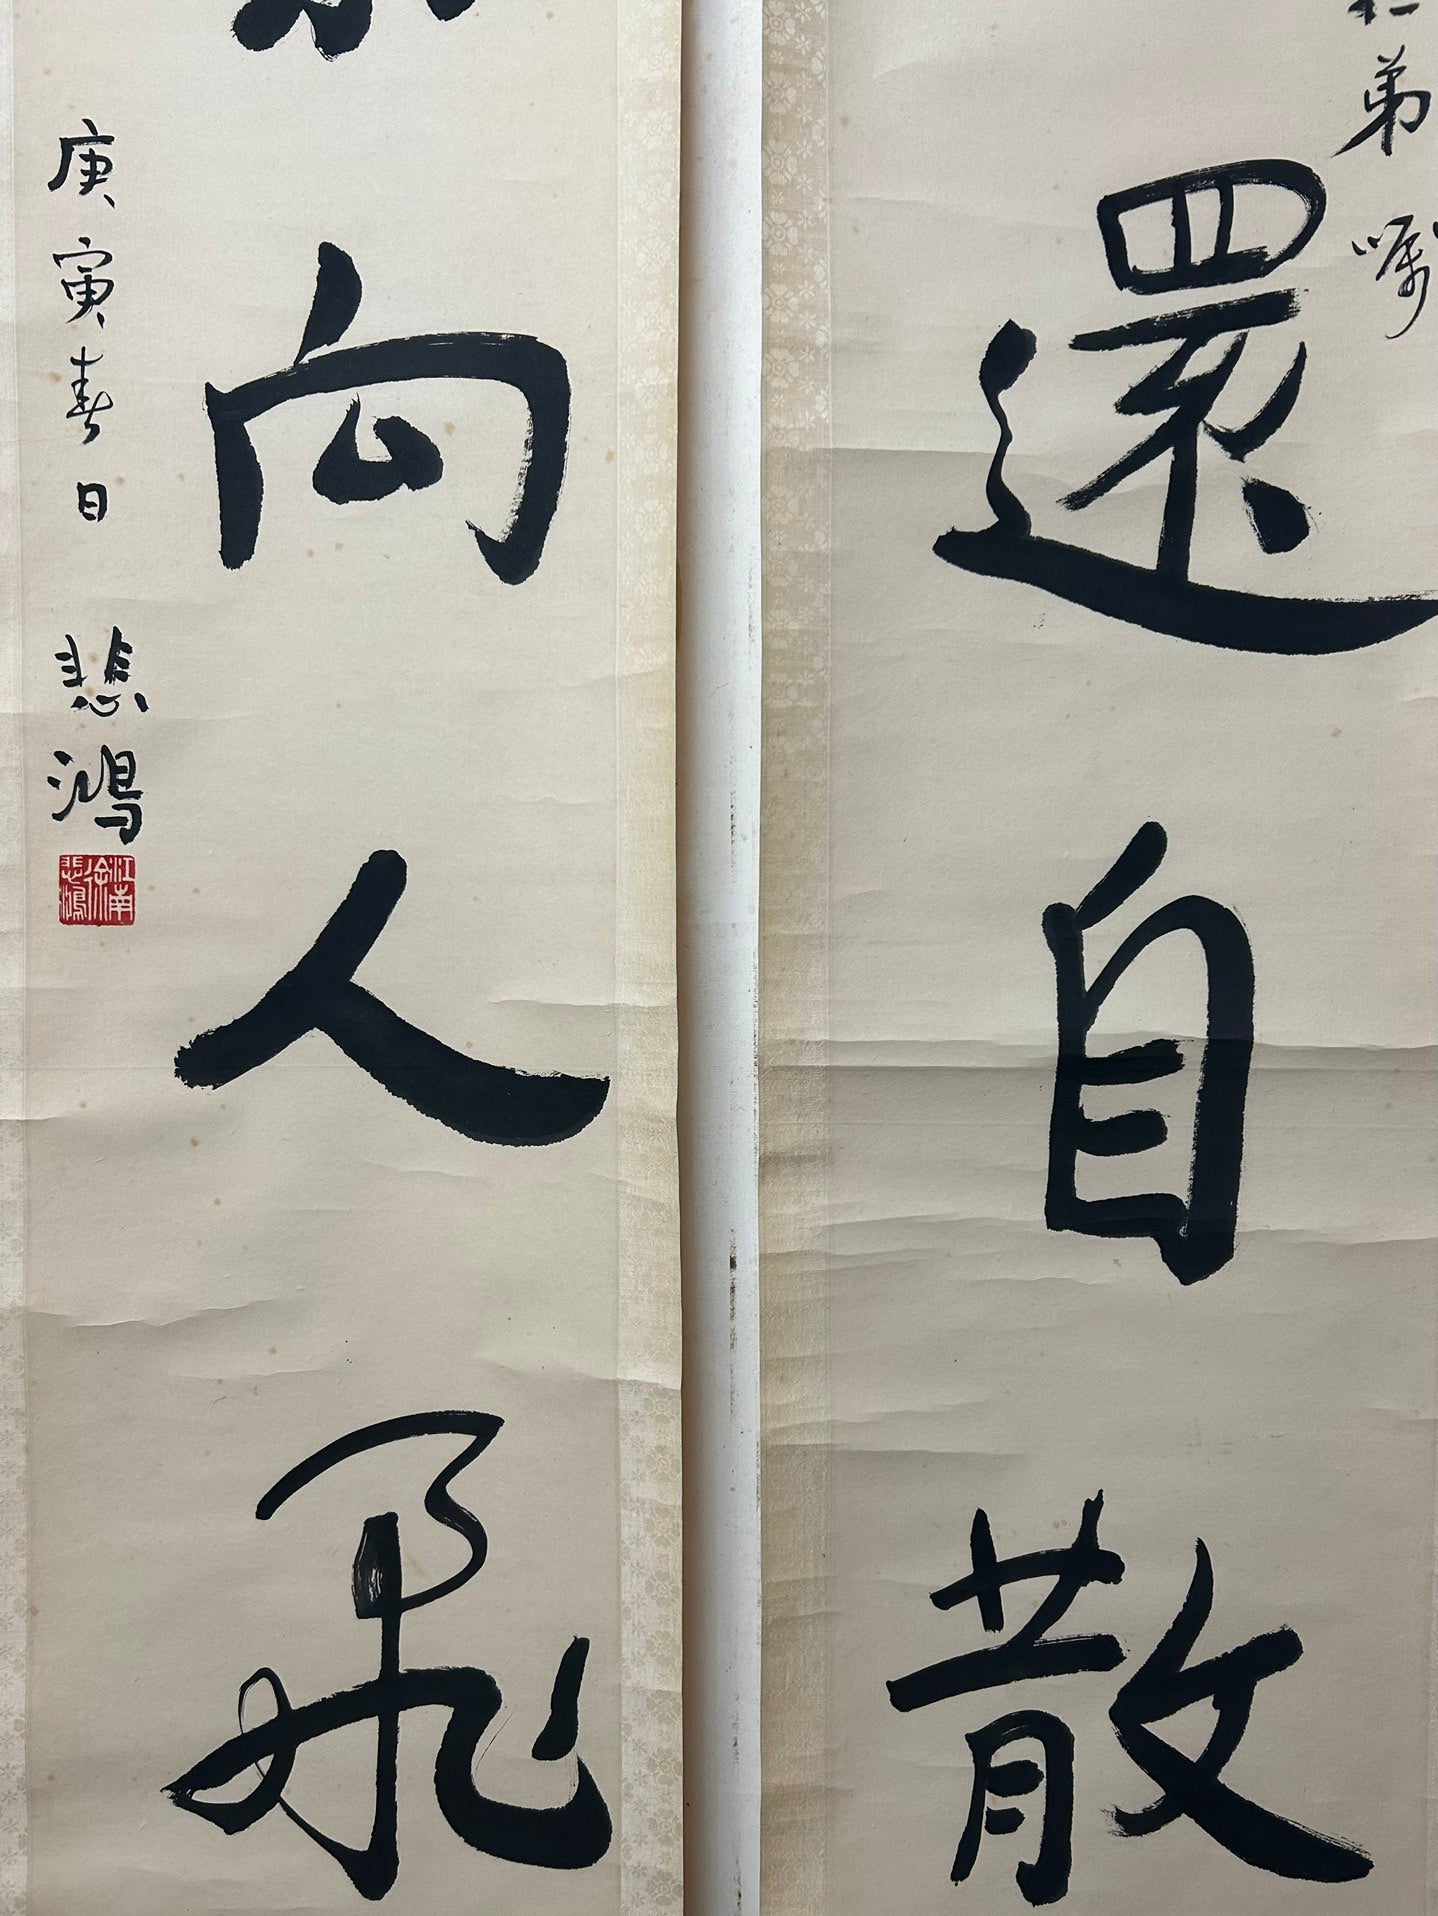 弟嘱
還自散
向人飛
庚寅春日
悲鴻
江南徐悲鴻